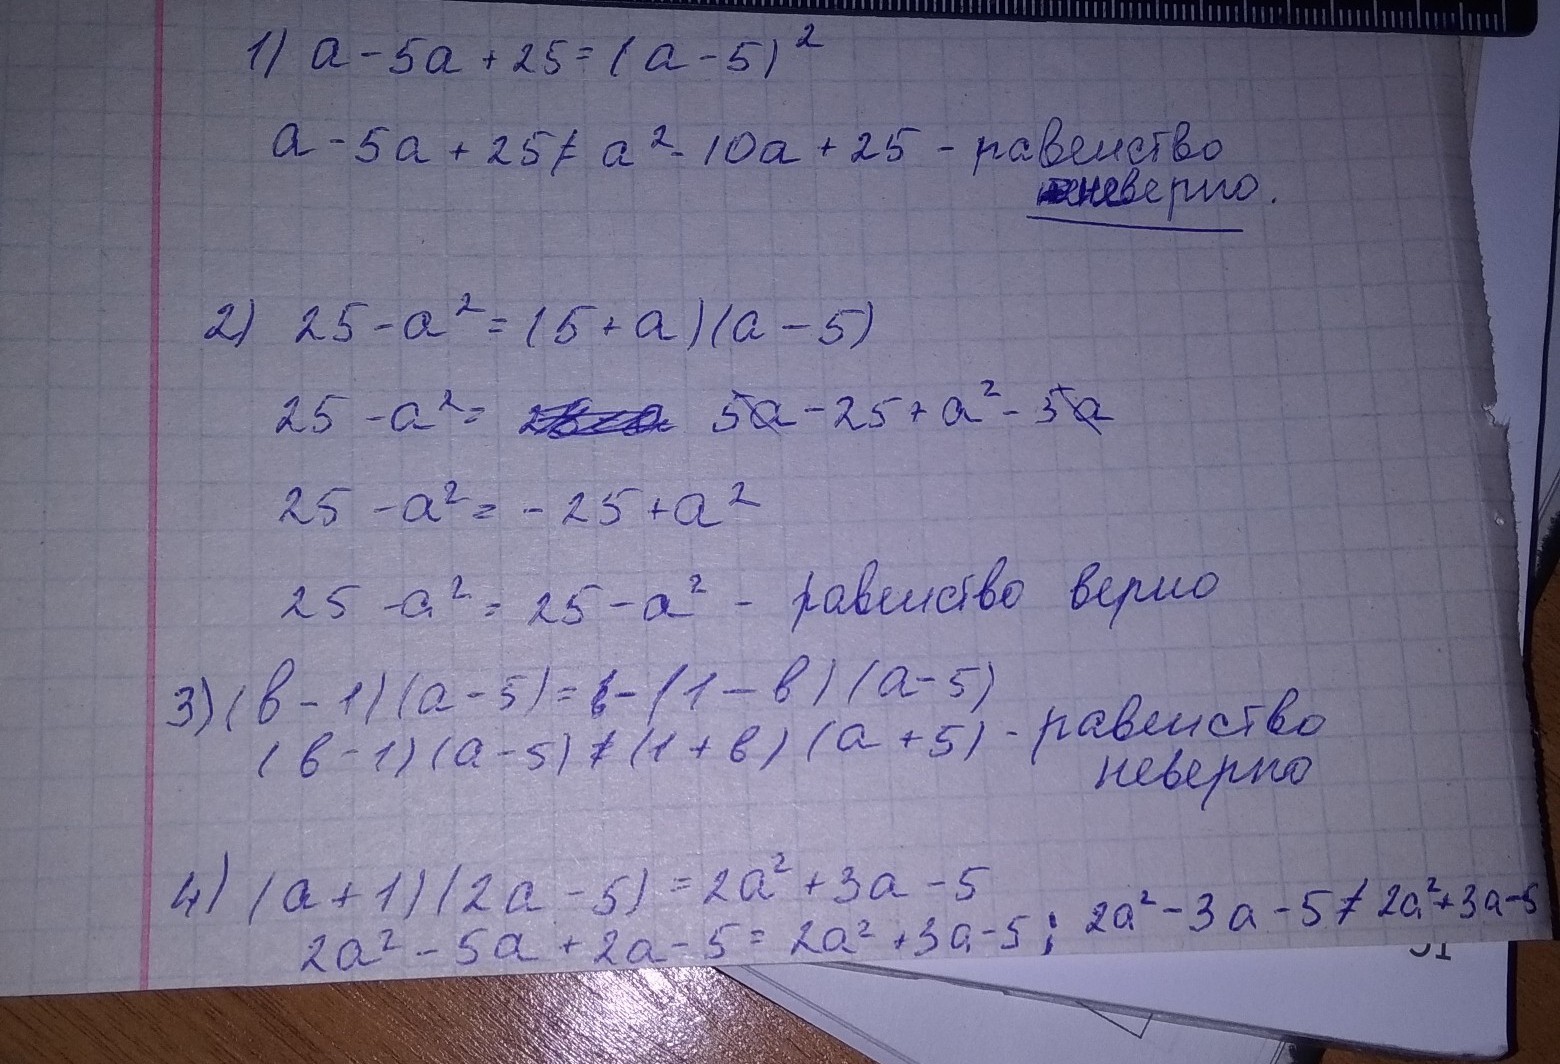 1) a - 5a + 25 = (a - 5)²
a - 5a + 25 ≠ a² - 10a + 25 - равенство
неверно.
2) 25 - a² = (5 + a)(a - 5)
25 - a² = 5a - 25 + a² - 5a
25 - a² = - 25 + a²
25 - a² = 25 - a² - равенство верно
3) (в - 1)(a - 5) = - (1 - в)(a - 5)
(в - 1)(a - 5) ≠ (1 + в)(a + 5) - равенство
неверно
4) (a + 1)(2a - 5) = 2a² + 3a - 5
2a² - 5a + 2a - 5 = 2a² + 3a - 5; 2a² - 3a - 5 ≠ 2a² + 3a - 5